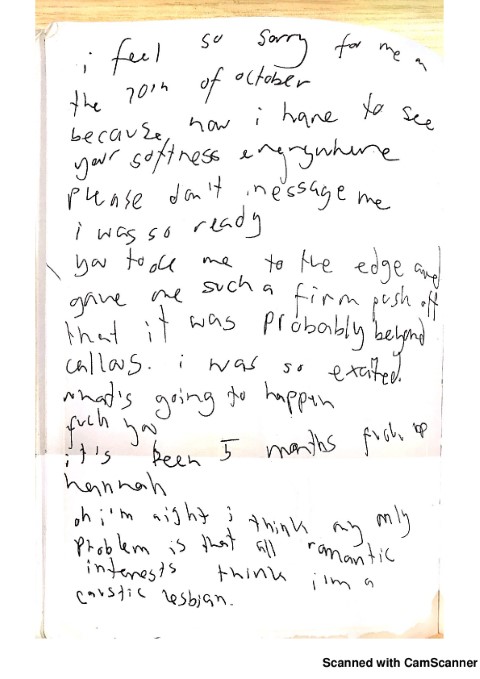 i feel so sorry for me on
the 20th of october
because now i have to see
your softness everywhere
please don't message me
i was so ready
you took me to the edge and
gave me such a firm push off
that it was probably beyond
callous. i was so excited.
what's going to happen
fuck you
it's been 5 months fuck up
hannah
oh i'm alright i think my only
problem is that all romantic
interests think i'm a
caustic lesbian.
Scanned with CamScanner